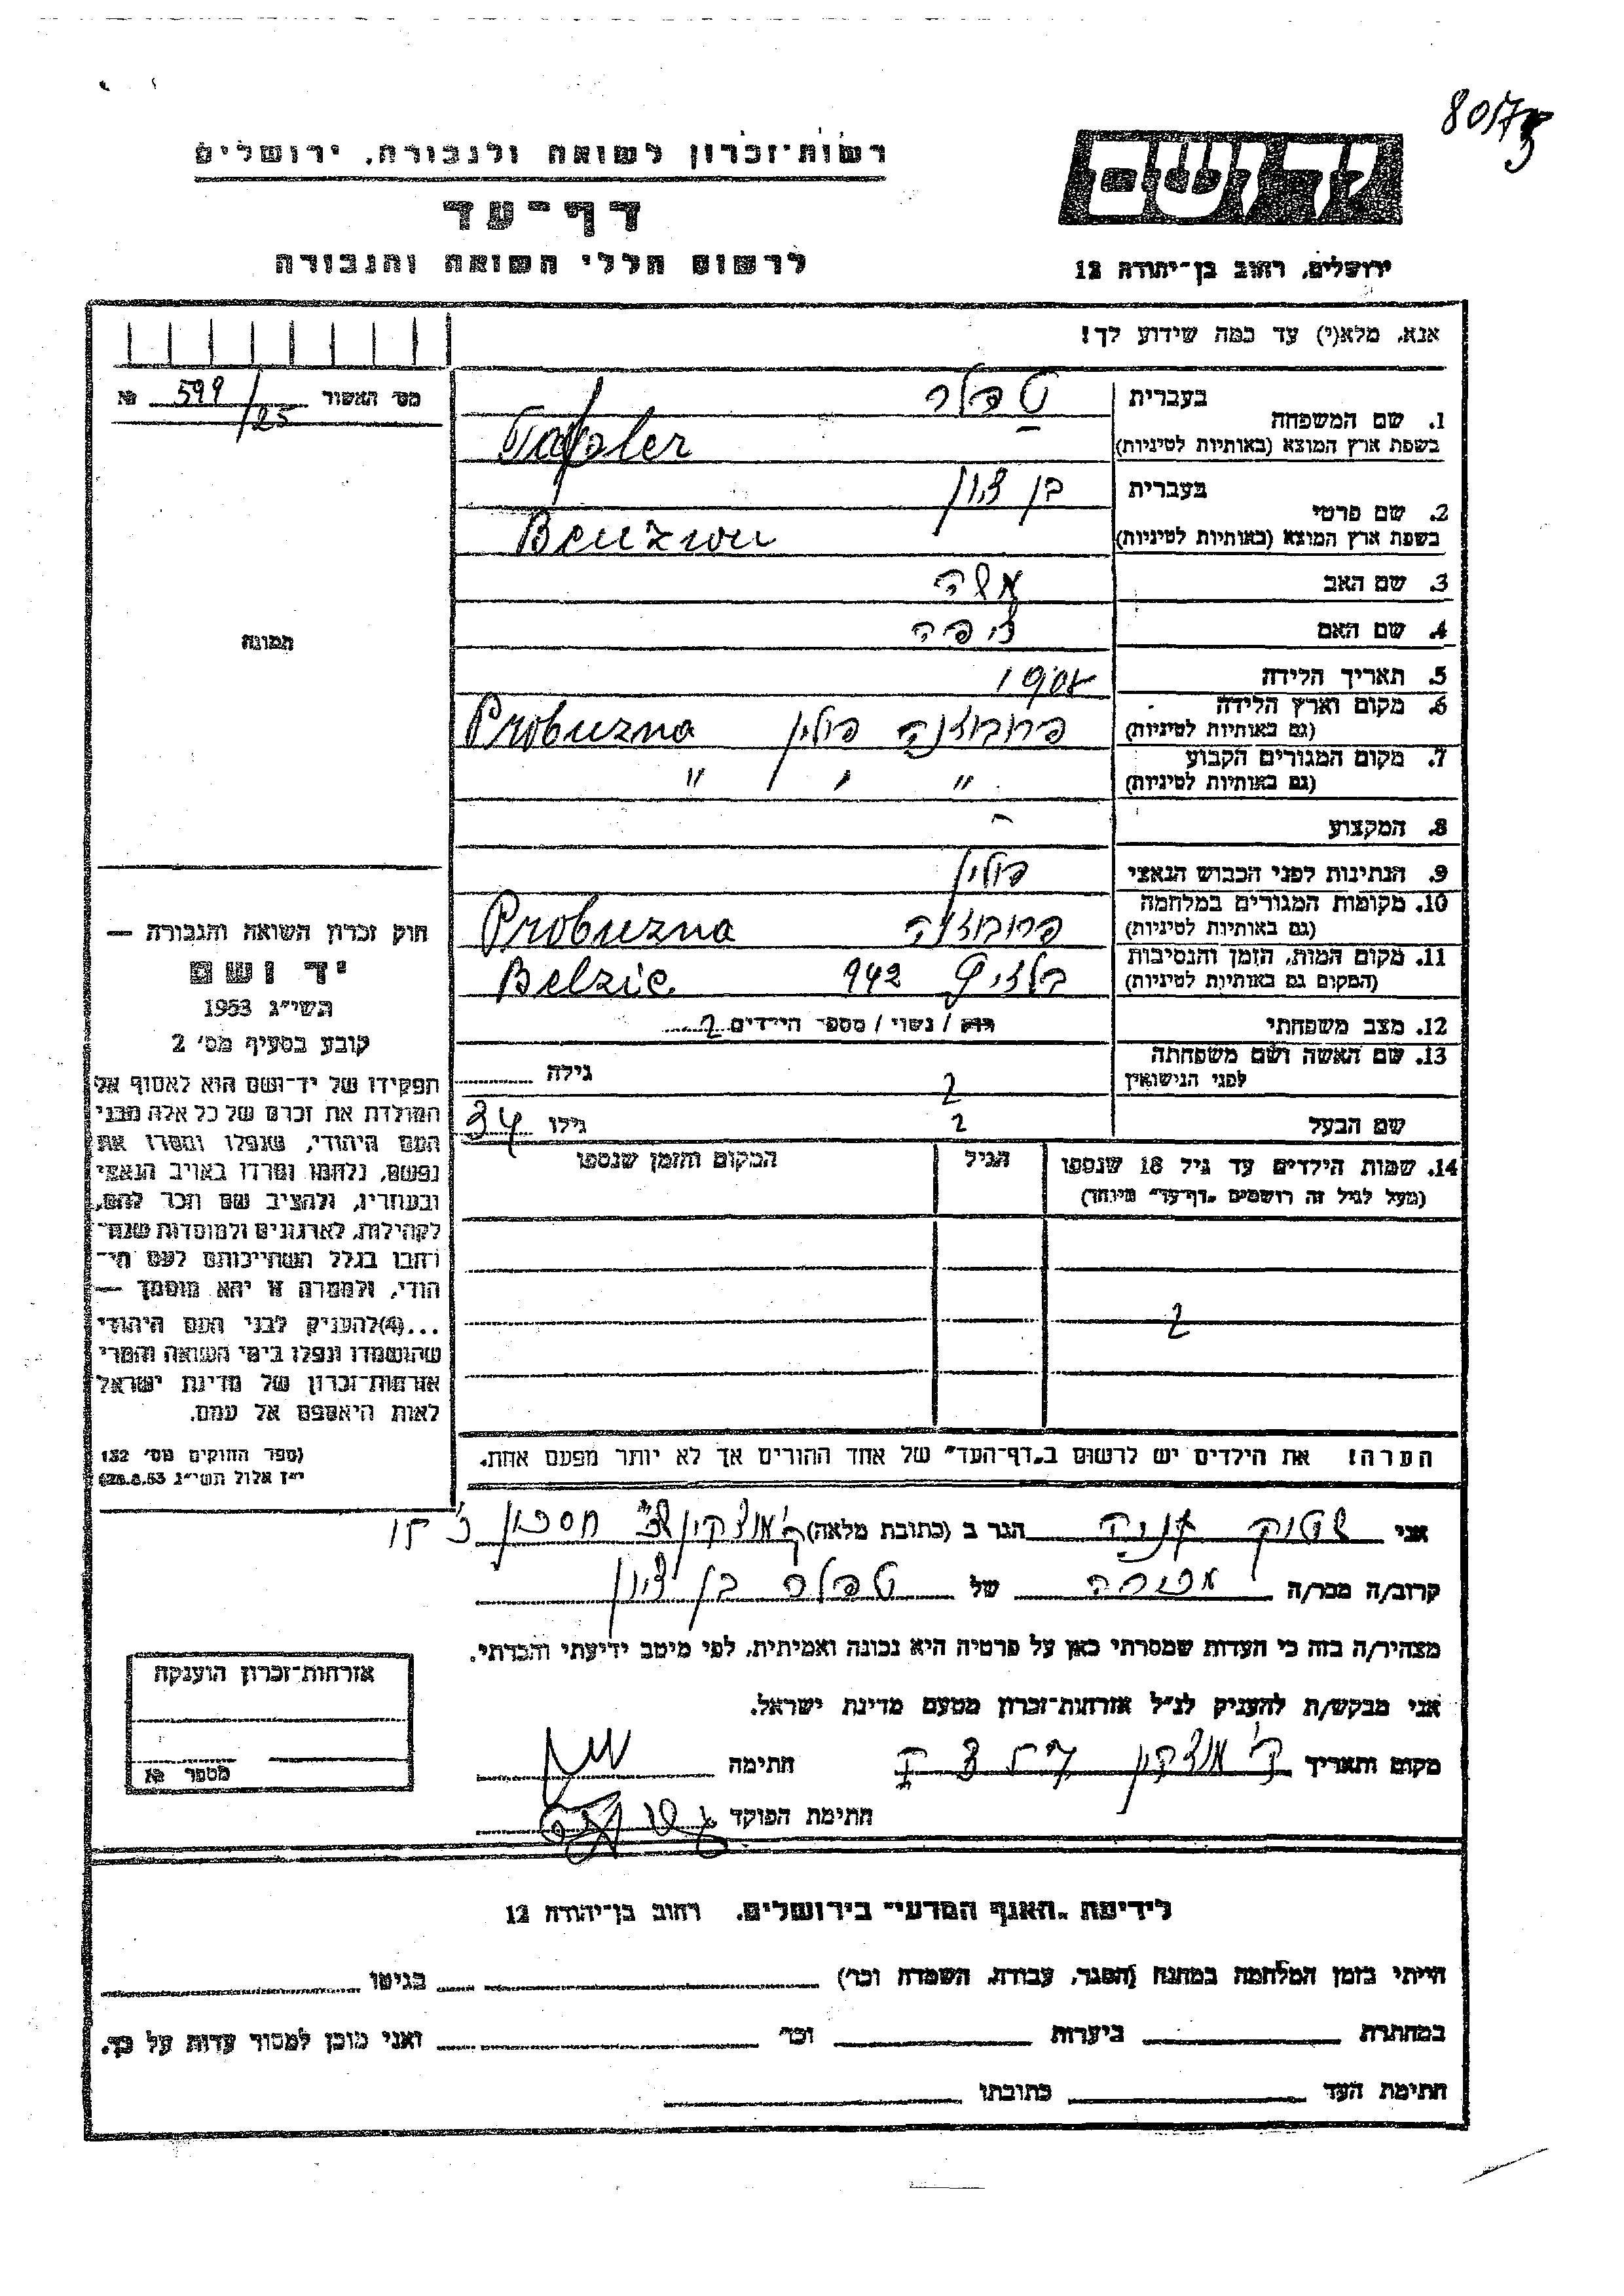 8017
יד ושם
רשות־זכרון לשואה ולגבורה, ירושלים
דף־עד
לרשום חללי השואה והגבורה
ירושלים, רחוב בן־יהודה 12
אנא, מלא(י) עד כמה שידוע לך!
מס׳ האשור 599/25 №
1. שם המשפחה
בעברית טפלר
בשפת ארץ המוצא (באותיות לטיניות) Tappler
2. שם פרטי
בעברית בן ציון
בשפת ארץ המוצא (באותיות לטיניות) Benzion
3. שם האב משה
4. שם האם ציפה
תמונה
5. תאריך הלידה 1908
6. מקום וארץ הלידה
(גם באותיות לטיניות) פרובוזנה פולין Probuzna
7. מקום המגורים הקבוע
(גם באותיות לטיניות) " " "
8. המקצוע -
9. הנתינות לפני הכבוש הנאצי פולין
10. מקומות המגורים במלחמה
(גם באותיות לטיניות) פרובוזנה Probuzna
11. מקום המות, הזמן והנסיבות
(המקום גם באותיות לטיניות) בלזיץ 942 Belzic
12. מצב משפחתי רווק / נשוי / מספר הילדים ?
13. שם האשה ושם משפחתה
לפני הנישואין ? גילה
שם הבעל ? גילו 34
14. שמות הילדים עד גיל 18 שנספו
(מעל לגיל זה רושמים „דף־עד" מיוחד)
הגיל
המקום והזמן שנספו
?
הערה! את הילדים יש לרשום ב„דף־העד" של אחד ההורים אך לא יותר מפעם אחת.
חוק זכרון השואה והגבורה —
יד ושם
תשי״ג 1953
קובע בסעיף מס׳ 2
תפקידו של יד־ושם הוא לאסוף אל
המולדת את זכרם של כל אלה מבני
העם היהודי, שנפלו ומסרו את
נפשם, נלחמו ומרדו באויב הנאצי
ובעוזריו, ולהציב שם וזכר להם,
לקהילות, לארגונים ולמוסדות שנח־
רבו בגלל השתייכותם לעם הי־
הודי, ולמטרה זו יהא מוסמך —
...(4)להעניק לבני העם היהודי
שהושמדו ונפלו בימי השואה והמרי
אזרחות־זכרון של מדינת ישראל
לאות היאספם אל עמם.
(ספר החוקים מס׳ 132
י״ז אלול תשי״ג 28.8.53)
אני שטוק הגר ב (כתובת מלאה) ק׳ מוצקין
קרוב/ה מכר/ה מכירה של טפלר בן ציון
מצהיר/ה בזה כי העדות שמסרתי כאן על פרטיה היא נכונה ואמיתית, לפי מיטב ידיעתי והכרתי.
אני מבקש/ת להעניק לנ״ל אזרחות־זכרון מטעם מדינת ישראל.
מקום ותאריך ק׳ מוצקין חתימה
חתימת הפוקד
אזרחות־זכרון הוענקה
מספר №
לידיעת „האגף המדעי" בירושלים, רחוב בן־יהודה 12
הייתי בזמן המלחמה במחנה (הסגר, עבודה, השמדה וכו׳) בגיטו
במחתרת ביערות וכו׳ ואני מוכן למסור עדות על כך.
חתימת העד כתובתו